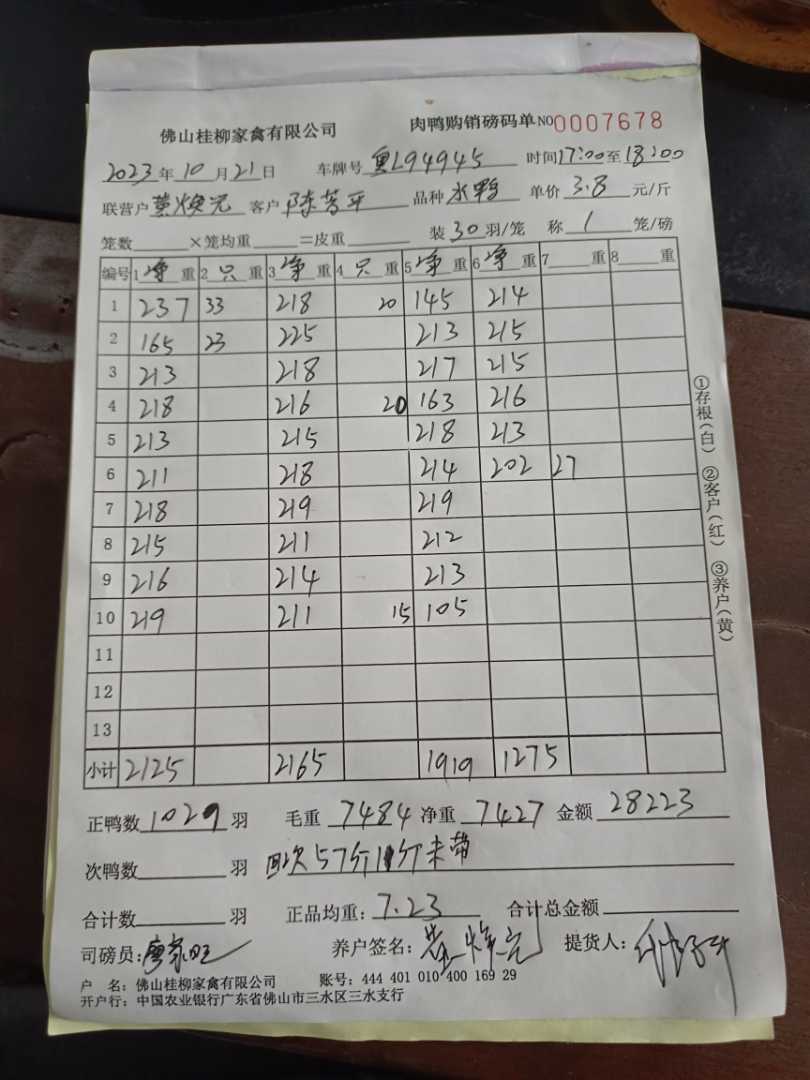 佛山桂柳家禽有限公司 肉鸭购销磅码单 NO 0007678
2023年10月21日 车牌号 粤L94945 时间17:00至18:00
联营户 黄焕元 客户 陈芳平 品种 水鸭 单价 3.8 元/斤
笼数 ×笼均重 =皮重 装30羽/笼 称 1 笼/磅
编号 1 净 重 2 只 重 3 净 重 4 只 重 5 净 重 6 净 重 7 重 8 重
1 237 33 218 20 145 214
2 165 23 225 213 215
3 213 218 217 215
4 218 216 20 163 216
5 213 215 218 213
6 211 218 214 202 27
7 218 219 219
8 215 211 212
9 216 214 213
10 219 211 15 105
11
12
13
小计 2125 2165 1919 1275
①存根(白) ②客户(红) ③养户(黄)
正鸭数 1029 羽 毛重 7484 净重 7427 金额 28223
次鸭数 羽 次57斤 未带
合计数 羽 正品均重: 7.23 合计总金额
司磅员: 廖家旺 养户签名: 黄焕元 提货人:
户 名: 佛山桂柳家禽有限公司 账号: 444 401 010 400 169 29
开户行: 中国农业银行广东省佛山市三水区三水支行